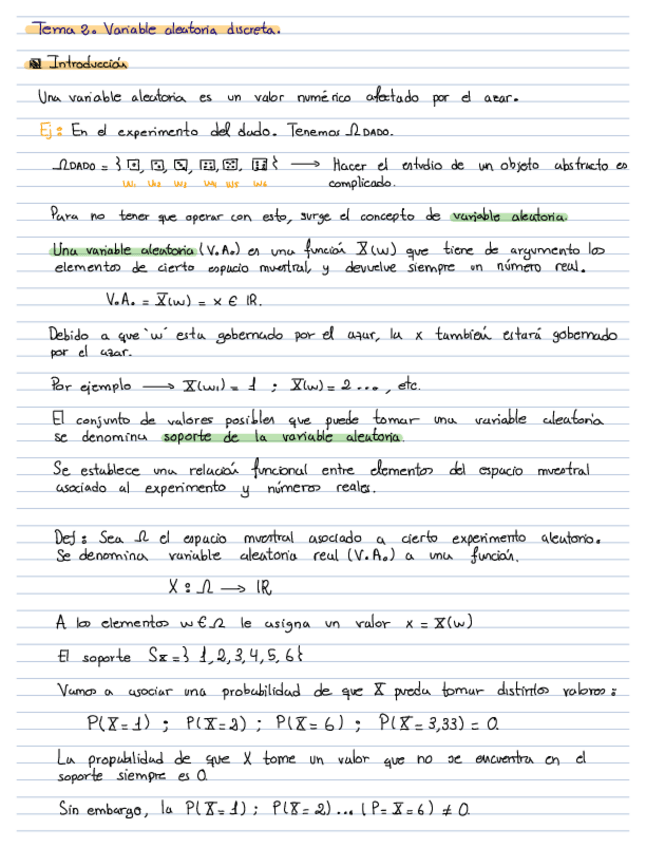 Tema 2. Variable aleatoria discreta.
Introducción
Una variable aleatoria es un valor numérico afectado por el azar.
Ej: En el experimento del dado. Tenemos Ω DADO.
Ω DADO = } ⚀, ⚁, ⚂, ⚃, ⚄, ⚅ { → Hacer el estudio de un objeto abstracto es
w₁ w₂ w₃ w₄ w₅ w₆ complicado.
Para no tener que operar con esto, surge el concepto de variable aleatoria.
Una variable aleatoria (V.A.) es una función X(w) que tiene de argumento los
elementos de cierto espacio muestral, y devuelve siempre un número real.
V.A. = X(w) = x ∈ IR.
Debido a que 'w' esta gobernado por el azar, la x también estará gobernado
por el azar.
Por ejemplo → X(w₁) = 1 ; X(w) = 2 ..., etc.
El conjunto de valores posibles que puede tomar una variable aleatoria
se denomina soporte de la variable aleatoria.
Se establece una relación funcional entre elementos del espacio muestral
asociado al experimento y números reales.
Def: Sea Ω el espacio muestral asociado a cierto experimento aleatorio.
Se denomina variable aleatoria real (V.A.) a una función.
X : Ω → IR
A los elementos w ∈ Ω le asigna un valor x = X(w)
El soporte Sx = } 1, 2, 3, 4, 5, 6 {
Vamos a asociar una probabilidad de que X pueda tomar distintos valores:
P(X=1) ; P(X=2) ; P(X=6) ; P(X=3,33) = 0.
La propabilidad de que X tome un valor que no se encuentra en el
soporte siempre es 0.
Sin embargo, la P(X=1) ; P(X=2) ... (P=X=6) ≠ 0.